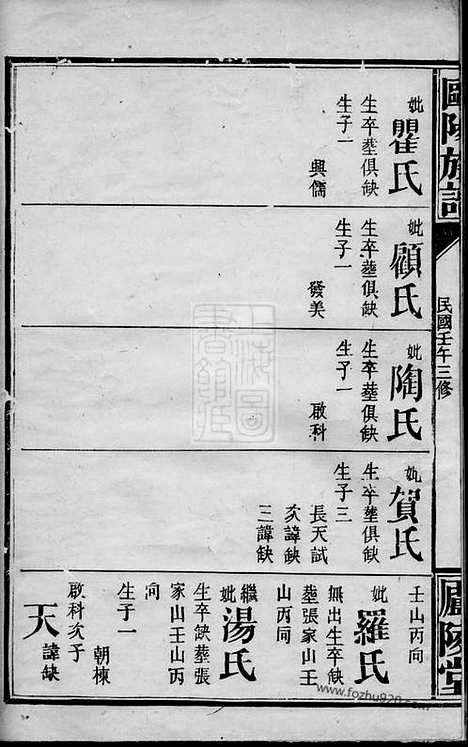 歐陽族譜
民國壬午三修
廬陵堂
妣瞿氏
生卒塟俱缺
生子一
興儒
妣顧氏
生卒塟俱缺
生子一
發美
妣陶氏
生卒塟俱缺
生子一
啟科
妣賀氏
生卒塟俱缺
生子三
長天試
次諱缺
三諱缺
壬山丙向
妣羅氏
無出生卒缺
塟張家山壬
山丙向
繼妣湯氏
生卒缺塟張
家山壬山丙
向
生子一
朝棟
啟科次子
天諱缺
上海圖書館藏
www.fozhu920.com